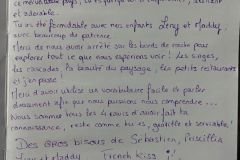 et adorable.
Tu as été formidable avec nos enfants Leroy et Maddy,
avec beaucoup de patience.
Merci de nous avoir arrêté sur les bords de route pour
explorer tout ce que nous espérions voir : les singes,
les cascades, la beauté du paysage, les petits restaurants
et j'en passe !
Merci d'avoir utilisé un vocabulaire facile et parler
doucement afin que nous puissions nous comprendre...
Nous sommes tous les 4 ravis d'avoir fait ta
connaissance, reste comme tu es, gentille et serviable !
Des gros bisous de Sébastien, Priscillia
et Maddy french kiss !